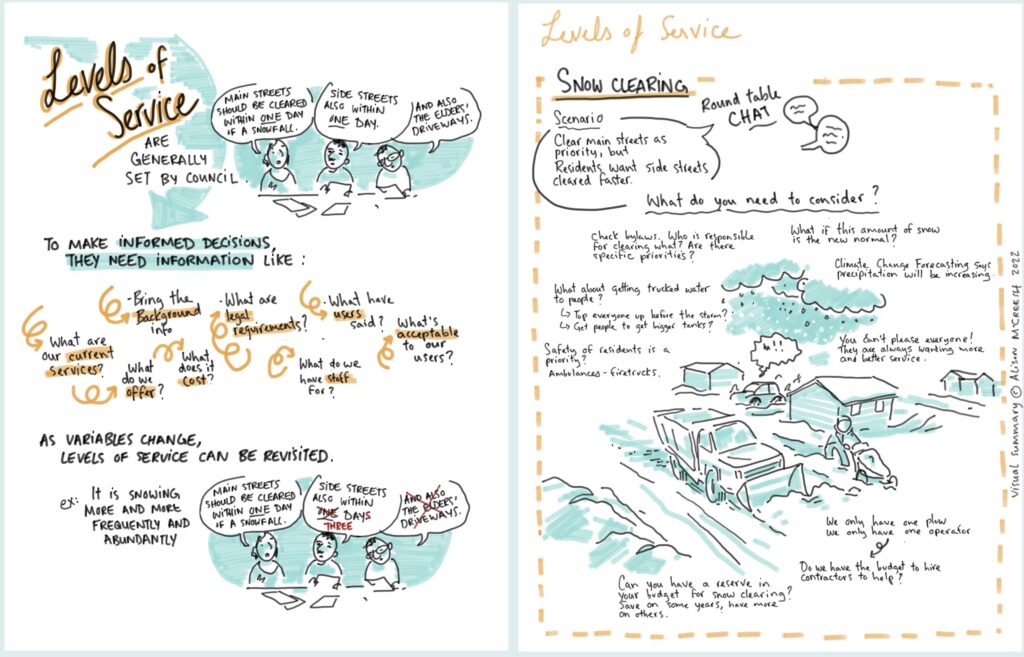 Levels of
Service
ARE
GENERALLY
SET BY COUNCIL.
MAIN STREETS
SHOULD BE CLEARED
WITHIN ONE DAY
OF A SNOWFALL.
SIDE STREETS
ALSO WITHIN
ONE DAY.
AND ALSO
THE ELDERS'
DRIVEWAYS.
TO MAKE INFORMED DECISIONS,
THEY NEED INFORMATION LIKE:
What are
our current
services?
Bring the
Background
info
What
do we
offer?
What
does it
cost?
What are
legal
requirements?
What do we
have staff
for?
What have
users
said?
What's
acceptable
to our
users?
AS VARIABLES CHANGE,
LEVELS OF SERVICE CAN BE REVISITED.
ex: IT IS SNOWING
MORE AND MORE
FREQUENTLY AND
ABUNDANTLY
MAIN STREETS
SHOULD BE CLEARED
WITHIN ONE DAY
OF A SNOWFALL.
SIDE STREETS
ALSO WITHIN
ONE DAYS
THREE
AND ALSO
THE ELDERS'
DRIVEWAYS.
Levels of Service
SNOW CLEARING
Round table
CHAT
Scenario
Clear main streets as
priority, but
Residents want side streets
cleared faster.
What do you need to consider?
Check bylaws. Who is responsible
for clearing what? Are there
specific priorities?
What if this amount of snow
is the new normal?
Climate Change Forecasting says
precipitation will be increasing.
What about getting trucked water
to people?
↳ Top everyone up before the storm?
↳ Get people to get bigger tanks?
You can't please everyone!
They are always wanting more
and better service.
Safety of residents is a
priority?
Ambulances - firetrucks.
We only have one plow
We only have one operator
Do we have the budget to hire
contractors to help?
Can you have a reserve in
your budget for snow clearing?
Save on some years, have more
on others.
Visual Summary © Alison McCreesh 2022